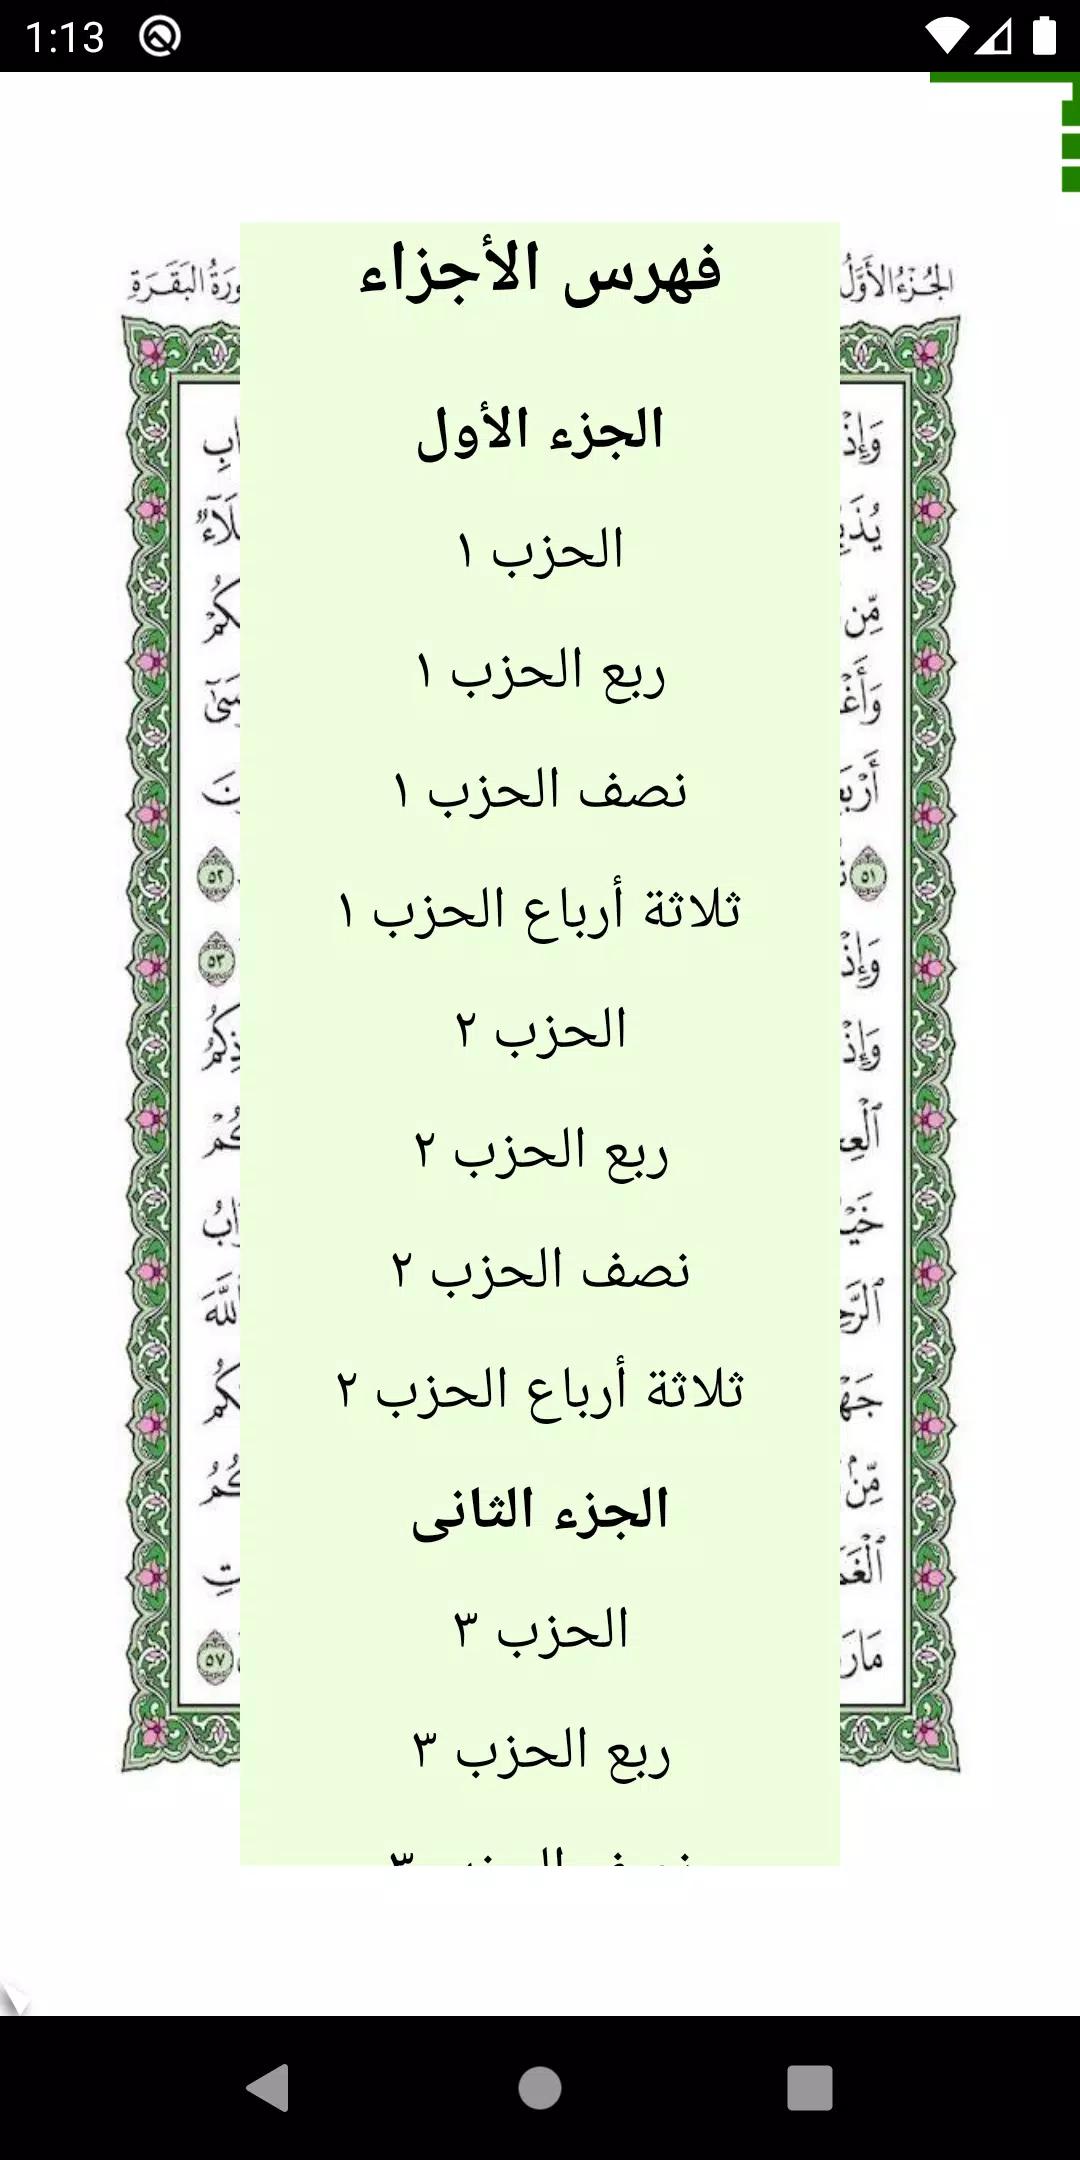 1:13
الجُزْءُ الأَوَّلُ
البَقَرَةِ
فهرس الأجزاء
الجزء الأول
الحزب ١
ربع الحزب ١
نصف الحزب ١
ثلاثة أرباع الحزب ١
الحزب ٢
ربع الحزب ٢
نصف الحزب ٢
ثلاثة أرباع الحزب ٢
الجزء الثانى
الحزب ٣
ربع الحزب ٣
وَإِذْ
مِّن
٥١
٥٢
٥٣
وَإِذْ
وَإِذْ
٥٧